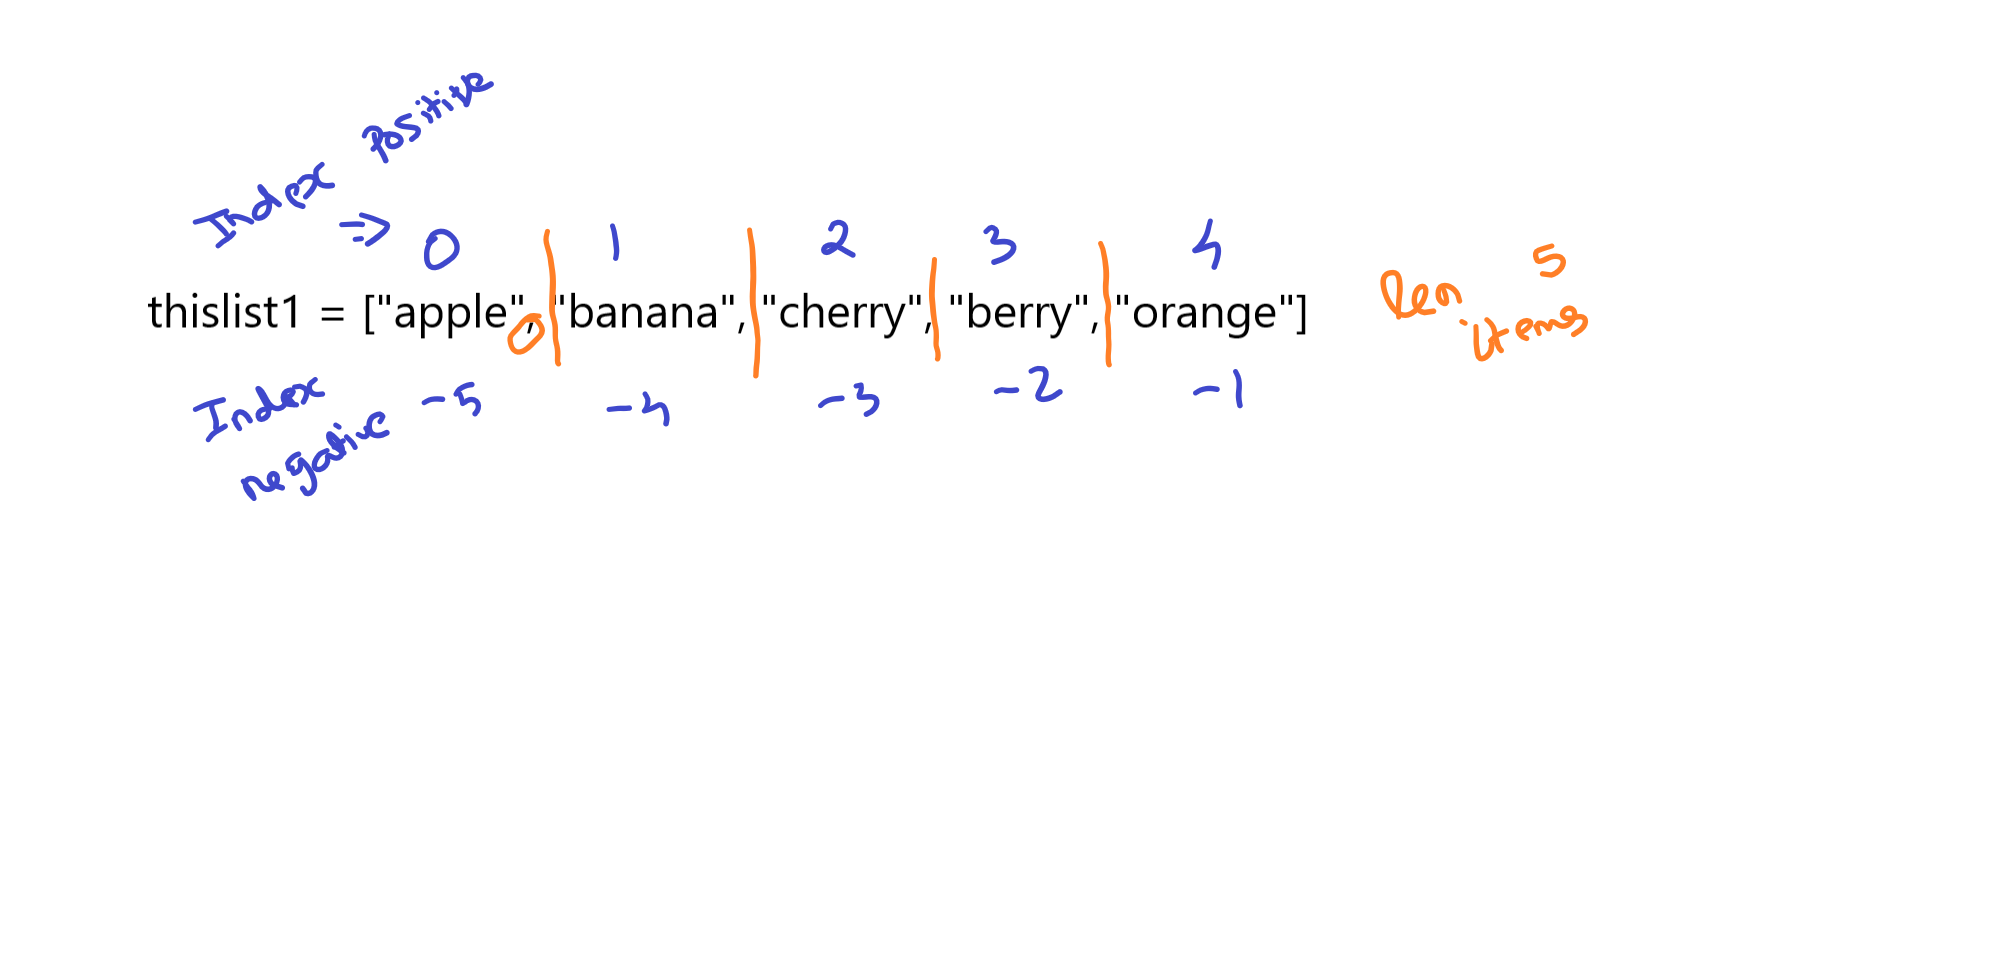 Index Positive
=> 0 1 2 3 4
thislist1 = ["apple", "banana", "cherry", "berry", "orange"]
len 5 items
Index negative
-5 -4 -3 -2 -1